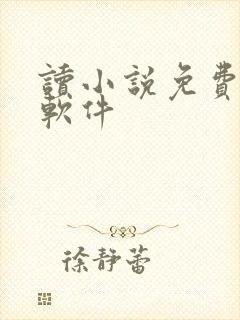 讀小說免費
軟件
徐靜蕾